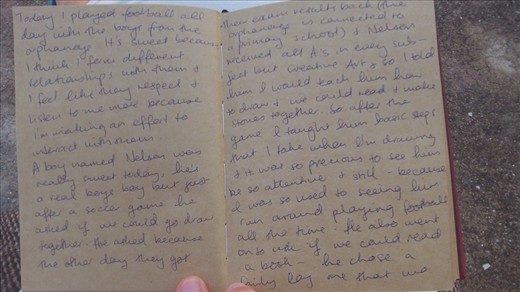 Today I played football all
day with the boys from the
orphanage. It's sweet because
I think I form different
relationships with them &
I feel like they respect &
listen to me more because
I'm making an effort to
interact with them
A boy named Nelson was
really sweet today, he's
a real boys boy but just
after a soccer game he
asked if we could go draw
together. He asked because
the other day they got
their exam results back (the
orphanage is connected to
a primary school) & Nelson
received all A's in every sub-
ject but creative Art & so I told
him I would teach him how
to draw & we could read & make
stories together. So after the
game I taught him basic steps
that I take when I'm drawing
& it was so precious to see him
be so attentive & still - because
I was so used to seeing him
run around playing football
all the time. He also went
on to ask if we could read
a book - he chose a
long me that was